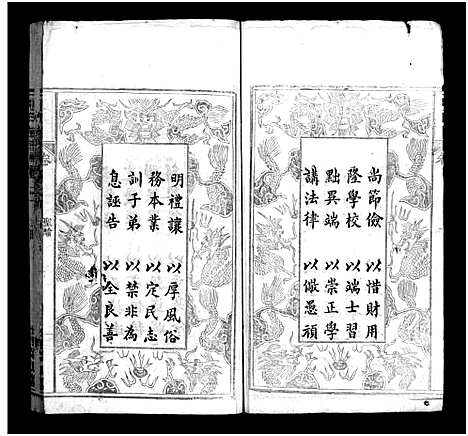 尚節儉 以惜財用
隆學校 以端士習
黜異端 以崇正學
講法律 以儆愚頑
明禮讓 以厚風俗
務本業 以定民志
訓子弟 以禁非為
息誣告 以全良善
聖諭